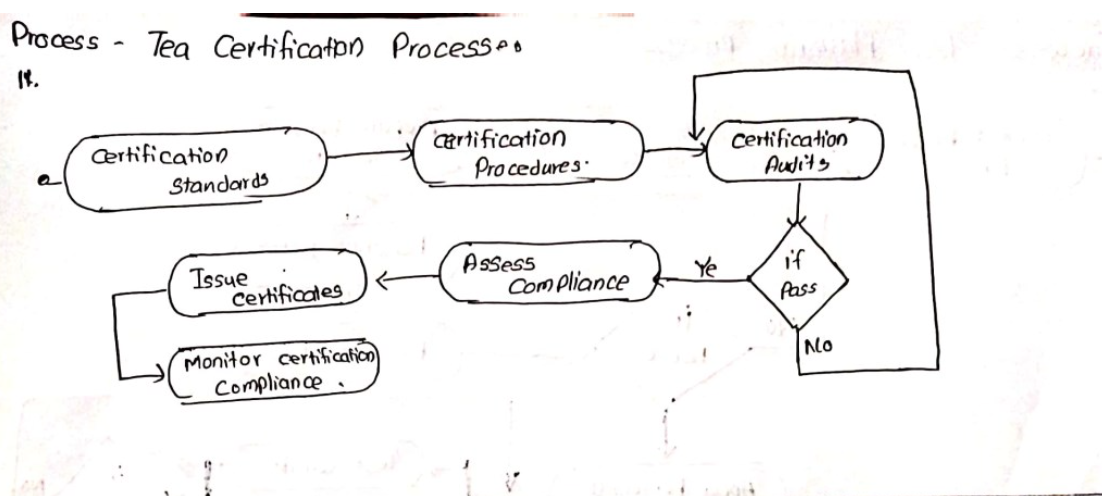 Process - Tea Certificaton Process
Certification
Standards
Certification
Procedures.
Certification
Audits
if
Pass
Ye
No
Assess
Compliance
Issue
Certificates
Monitor certification
Compliance.